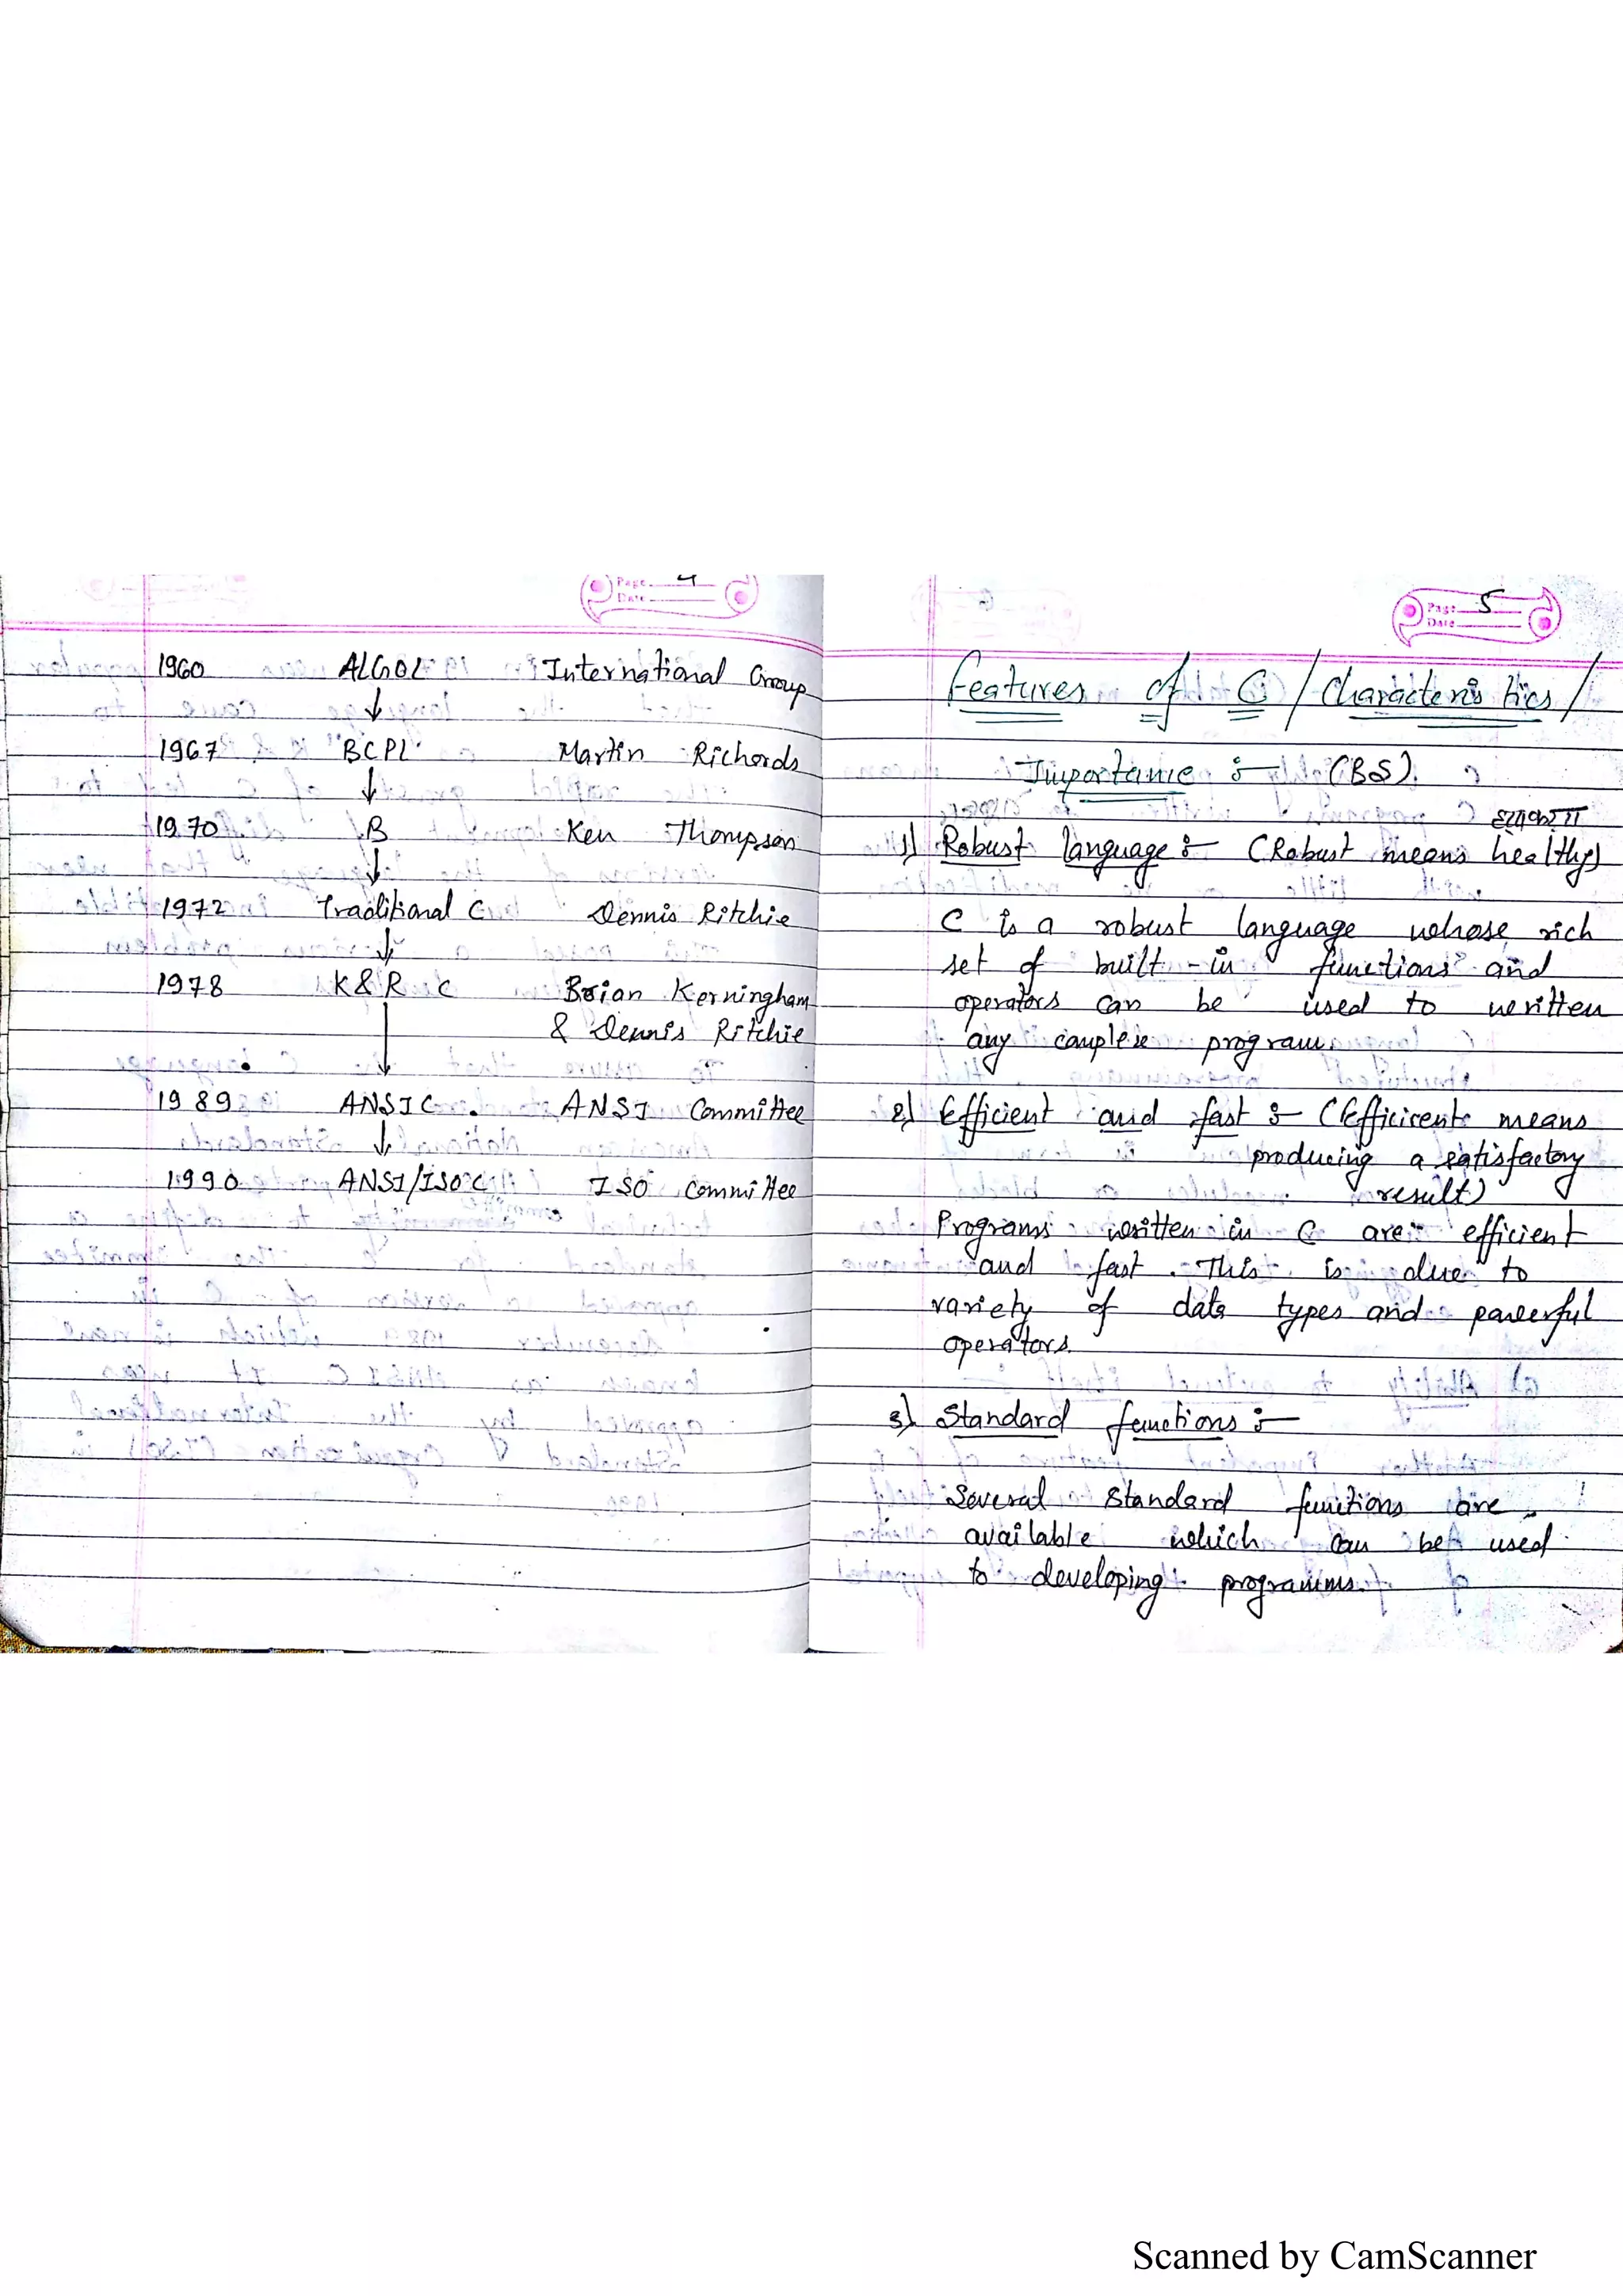 Page 4
Date
1960 ALGOL International Group
↓
1967 BCPL Martin Richards
↓
1970 B Ken Thompson
↓
1972 Traditional C Dennis Ritchie
↓
1978 K&R C Brian Kerningham
& Dennis Ritchie
↓
1989 ANSI C. ANSI Committee
↓
1990 ANSI/ISO C ISO Committee
Page 5
Date
Features of C / Characteristics /
Importance :- (BS)
1) Robust language :- (Robust means healthy)
C is a robust language whose rich
set of built-in functions and
operators can be used to written
any complex program.
2) Efficient and fast :- (Efficient means
producing a satisfactory
result)
Programs written in C are efficient
and fast. This is due to
variety of data types and powerful
operators.
3) Standard functions :-
Several standard functions are
available which can be used
to developing programms.
Scanned by CamScanner